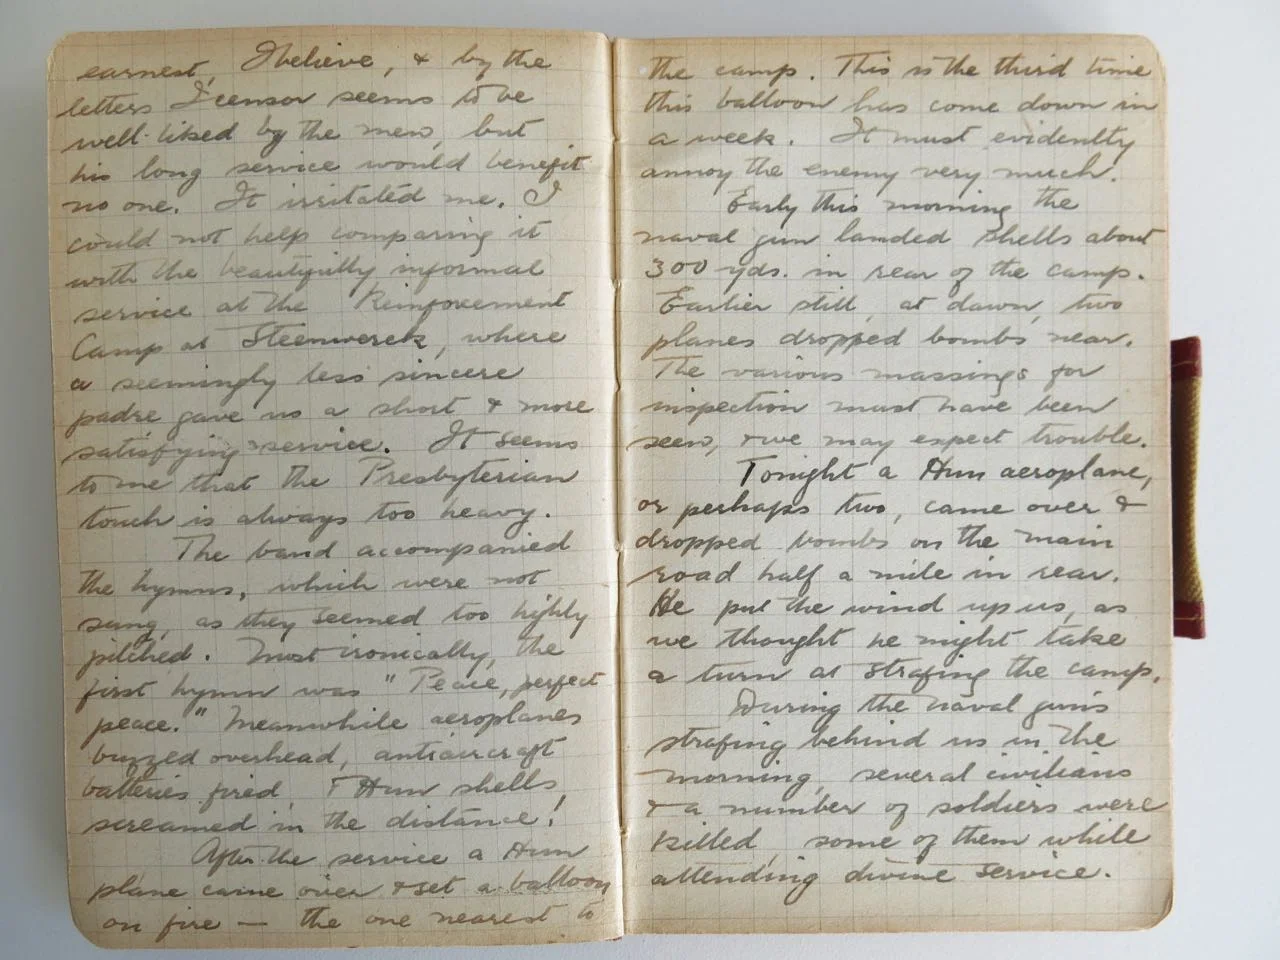 earnest, I believe, & by the
letters I censor seems to be
well-liked by the men, but
his long service would benefit
no one. It irritated me. I
could not help comparing it
with the beautifully informal
service at the Reinforcement
Camp at Steenwerck, where
a seemingly less sincere
padre gave us a short & more
satisfying service. It seems
to me that the Presbyterian
touch is always too heavy.
The band accompanied
the hymns, which were not
sung, as they seemed too highly
pitched. Most ironically, the
first hymn was "Peace, perfect
peace." Meanwhile aeroplanes
buzzed overhead, antiaircraft
batteries fired, & Hun shells
screamed in the distance!
After the service a Hun
plane came over & set a balloon
on fire — the one nearest to
the camp. This is the third time
this balloon has come down in
a week. It must evidently
annoy the enemy very much.
Early this morning the
naval gun landed shells about
300 yds. in rear of the camp.
Earlier still, at dawn, two
planes dropped bombs near.
The various massings for
inspection must have been
seen, & we may expect trouble.
Tonight a Hun aeroplane,
or perhaps two, came over &
dropped bombs on the main
road half a mile in rear.
He put the wind up us, as
we thought he might take
a turn at strafing the camp.
During the naval gun's
strafing behind us in the
morning, several civilians
& a number of soldiers were
killed, some of them while
attending divine service.